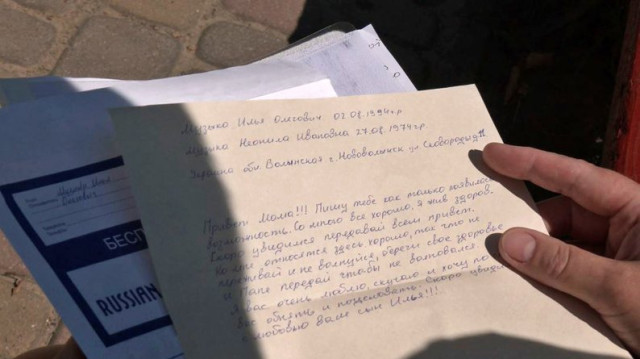 Музыко Илья Олегович 02.08.1994г.р
Музыко Неонила Ивановна 27.08.1974г.р.
Украина обл. Волынская г. Нововолынск ул Свободы
Привет Мама!!! Пишу тебе как только появилась
возможность. Со мною все хорошо, я жив здоров.
Скоро увидимся передавай всем привет.
Ко мне относятся здесь хорошо, так что не
переживай и не волнуйся, береги свое здоровье
и Папе передай чтобы не волновался.
Я вас очень люблю, скучаю и хочу
вас обнять и поцеловать. Скоро
с любовью Ваш сын Илья!!!
Музыко Илья
БЕСП
RUSSIAN